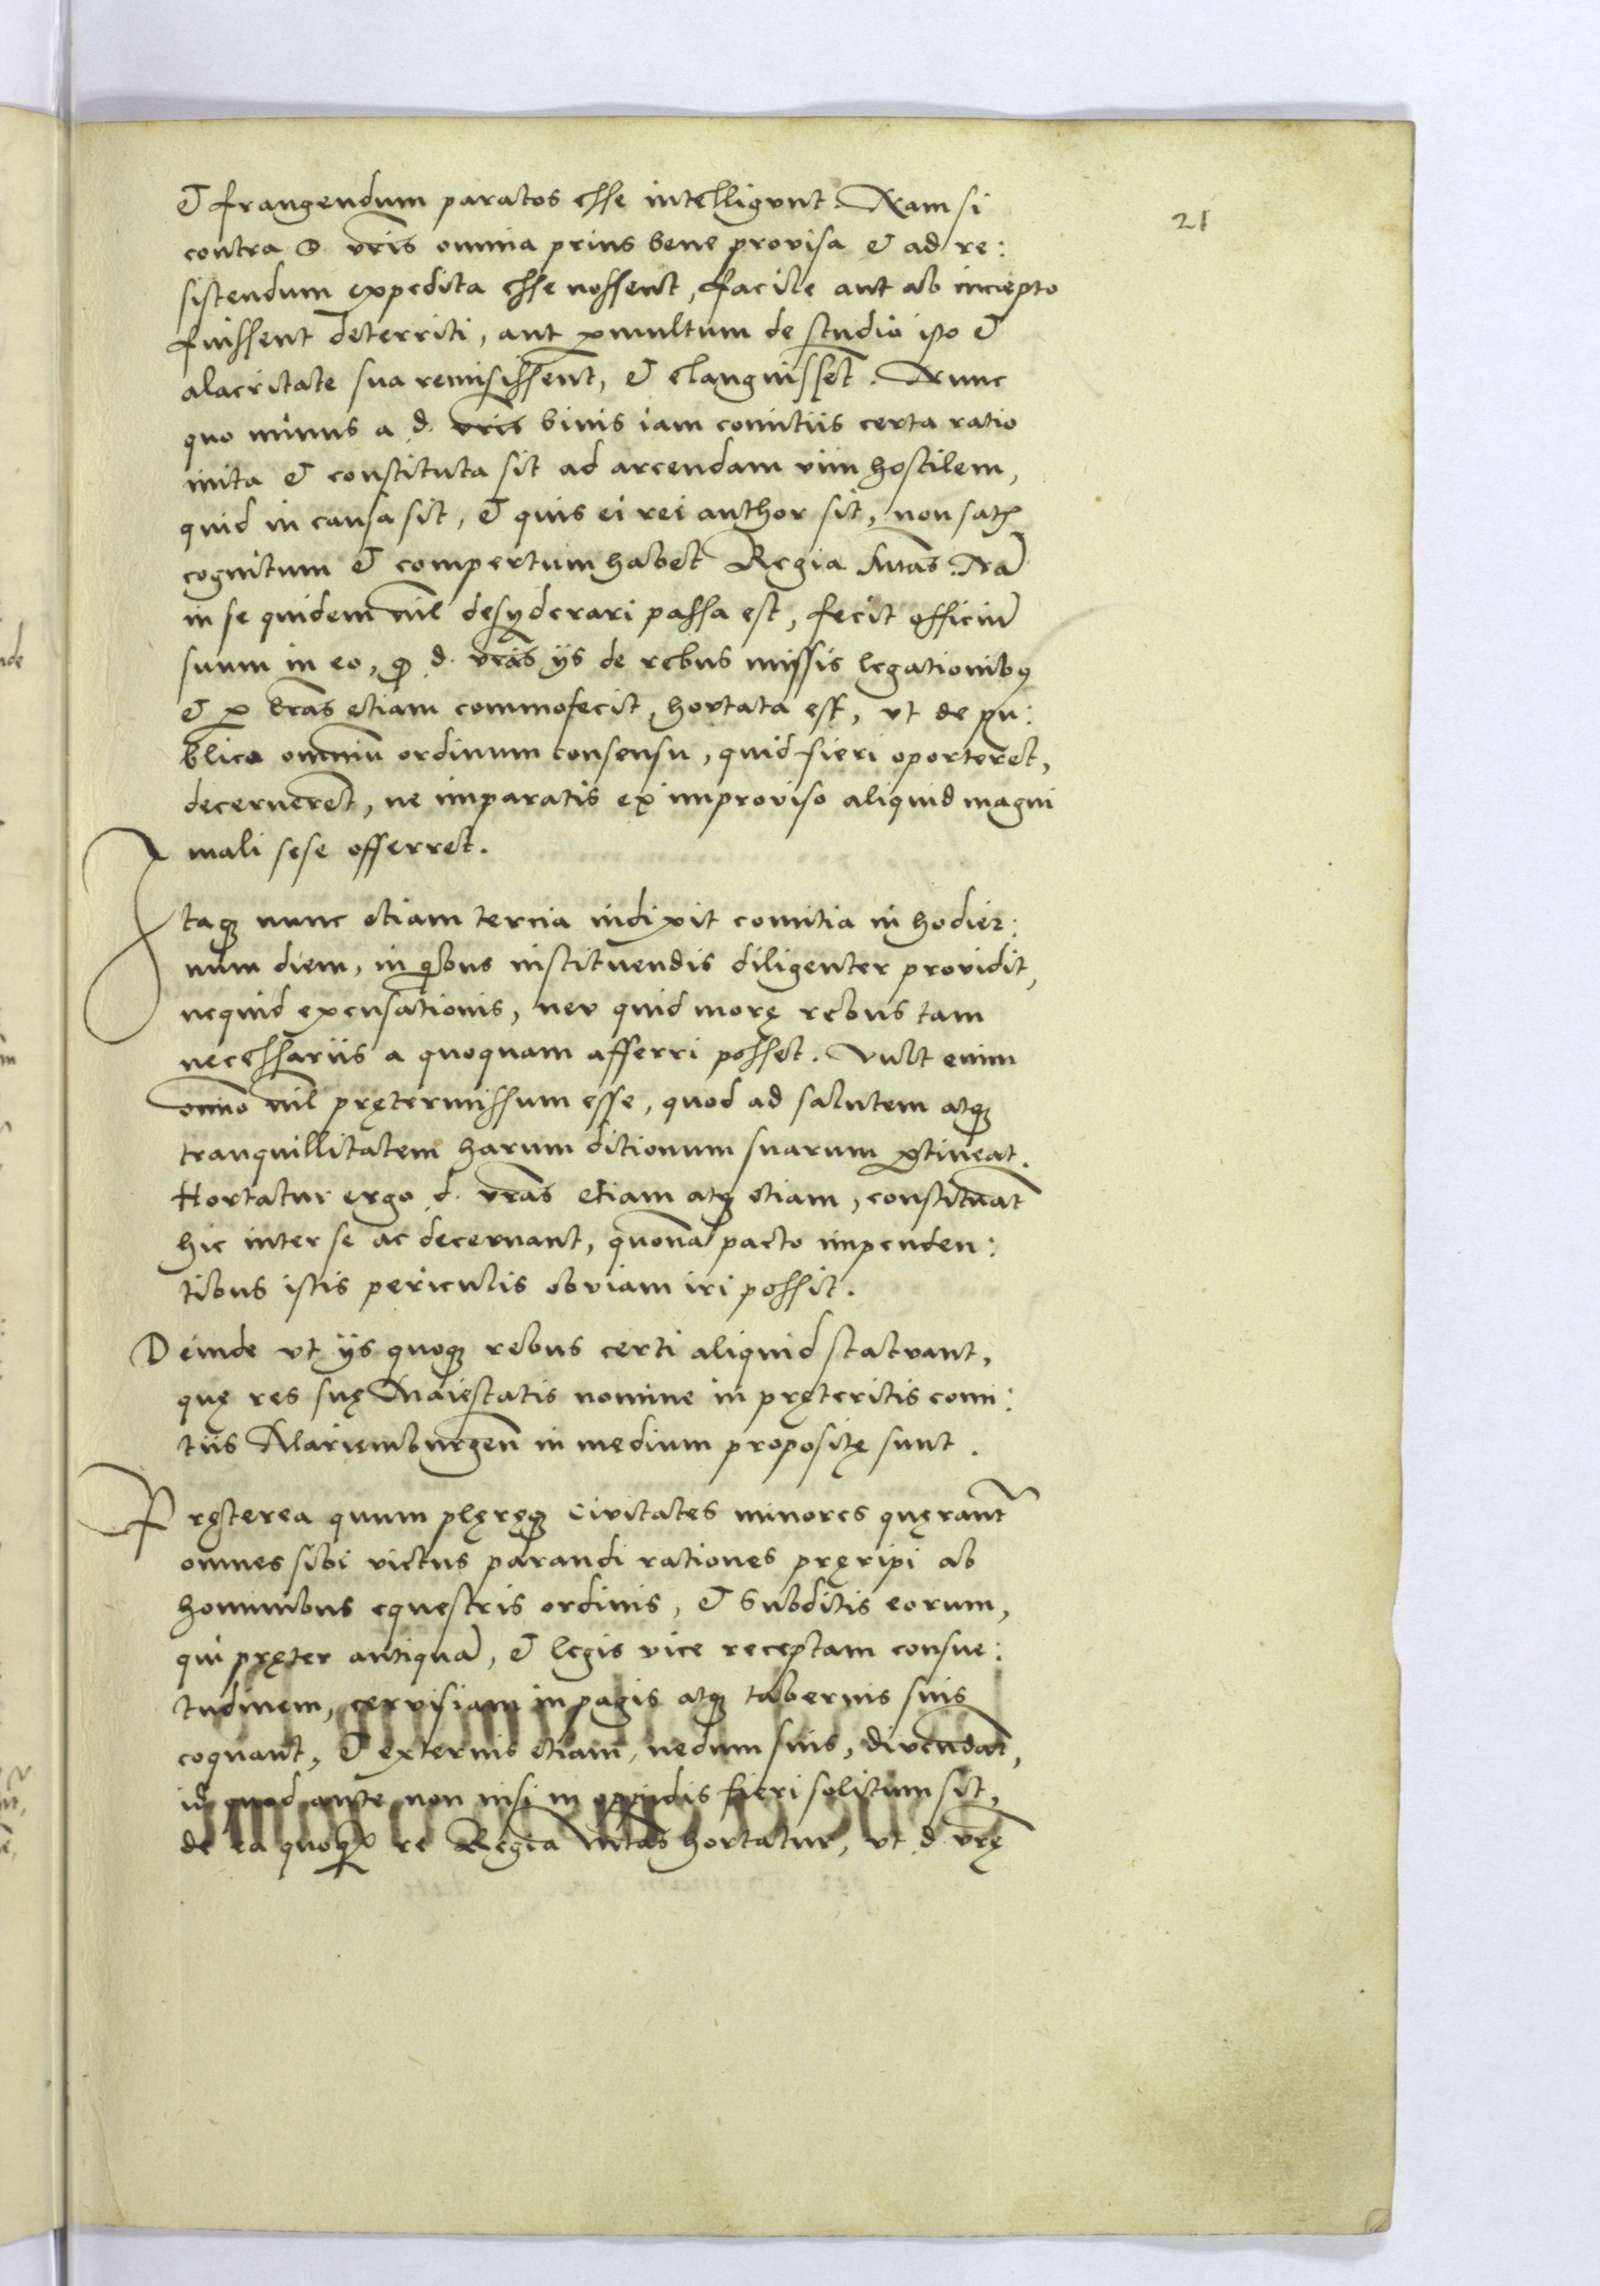 21
& frangendum paratos esse intelligunt. Nam si
contra D. vr̃is omnia prius bene provisa & ad re:
sistendum expedita esse nossent, facile aut ab incepto
fuissent deterriti, aut ꝑmultum de studio ip̃o &
alacritate sua remisissent, & elanguissẽt. Nunc
quo minus a d. vr̃is binis iam comitiis certa ratio
inita & constituta sit ad arcendam vim hostilem,
quid in causa sit, & quis ei rei author sit, non satꝭ
cognitum & compertum habet Regia M̃tas. Nã
in se quidem nil desyderari passa est, fecit officiũ
suum in eo, ꝙ d. vr̃as ijs de rebus missis legationibꝰ
& ꝑ lr̃as etiam commofecit, hortata est, vt de pu:
blico omniũ ordinum consensu, quid fieri oporteret,
decernerẽt, ne imparatis ex improviso aliquid magni
mali sese offerret.
Itaqꝫ nunc etiam tercia indixit comitia in hodier:
num diem, in qͥbus instituendis diligenter providit,
nequid excusationis, neu quid morę rebus tam
necessariis a quoquam afferri posset. Vult enim
om̃io nil prętermissum esse, quod ad salutem atqꝫ
tranquillitatem harum ditionum suarum ꝑtineat.
Hortatur ergo d. vr̃as etiam atqꝫ etiam, constituãt
hic inter se ac decernant, quonã pacto impenden:
tibus istis periculis obviam iri possit.
Deinde vt ijs quoqꝫ rebus certi aliquid statuant,
quę res suę Maiestatis nomine in pręteritis comi:
tiis Mariemburgeñ in medium propositę sunt.
Pręterea quum plęręqꝫ civitates minores quęrant̃
omnes sibi victus parandi rationes pręripi ab
hominibus equestris ordinis, & subditis eorum,
qui pręter antiquã, & legis vice receptam consue:
tudinem, cervisiam in pagis atqꝫ tabernis suis
coquant, & externis etiam, nedum suis, divendãt,
id quod ante non nisi in oppidis fieri solitum sit,
de ea quoqꝫ re Regia M̃tas hortatur, vt d. vr̃ę